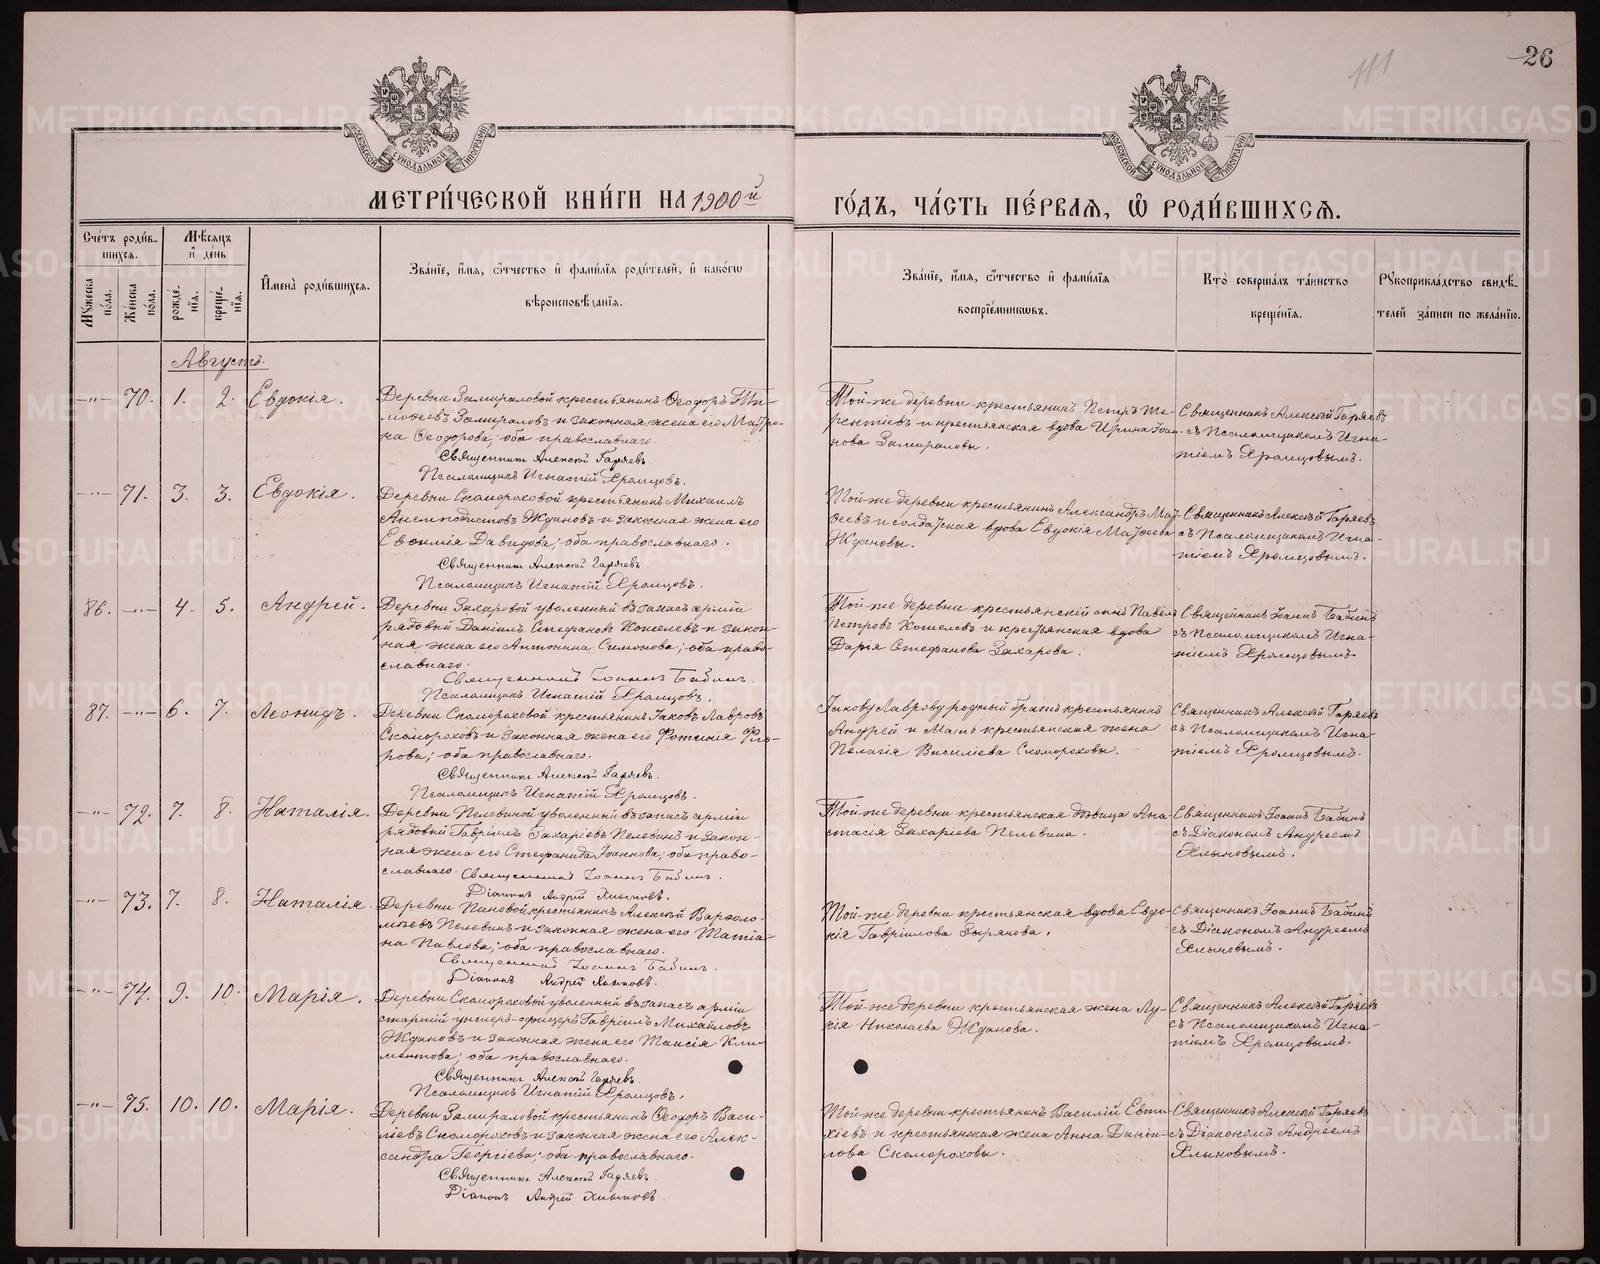 26
111
МЕТРИ́ЧЕСКОЙ КНИ́ГИ НА 1900й
ГО́ДЪ, ЧА́СТЬ ПЕ́РВАѦ, Ѿ РОДИ́ВШИХСѦ.
Сче́тъ роди́в-
шихсѧ.
Мꙋжеска по́ла.
Же́нска по́ла.
Мѣ́сѧцъ и҆ де́нь
рожде́-нїѧ.
креще́-нїѧ.
И҆мена̀ роди́вшихсѧ.
Зва́нїе, и҆́мѧ, ѻ҆́тчество и҆ фами́лїѧ роди́телей, и҆ како́гѡ
вѣроисповѣ́данїѧ.
Зва́нїе, и҆́мѧ, ѻ҆́тчество и҆ фами́лїѧ
воспрїе́мникѡвъ.
Кто̀ соверша́лъ та́инство
креще́нїѧ.
Рꙋкоприкла́дство свидѣ́-
телей за́писи по жела́нїю.
Августъ.
-"- 70. 1. 2. Евдокія.
Деревни Замираловой крестьянинъ Ѳеодоръ Ти-
моѳеевъ Замираловъ и законная жена его Матро-
на Ѳеодорова; оба православнаго.
Священникъ Алексѣй Гаряевъ.
Псаломщикъ Игнатій Хромцовъ.
Той-же деревни крестьянинъ Петръ Те-
рентіевъ и крестьянская вдова Ирина Іоан-
нова Замираловы.
Священникъ Алексѣй Гаряевъ
съ Псаломщикомъ Игна-
тіемъ Хромцовымъ.
-"- 71. 3. 3. Евдокія.
Деревни Скомороховой крестьянинъ Михаилъ
Анемподистовъ Ждановъ и законная жена его
Евѳимія Давидова; оба православнаго.
Священникъ Алексѣй Гаряевъ.
Псаломщикъ Игнатій Хромцовъ.
Той-же деревни крестьянинъ Александръ Мат-
ѳеевъ и солдатская вдова Евдокія Матѳеева
Ждановы.
Священникъ Алексѣй Гаряевъ
съ Псаломщикомъ Игна-
тіемъ Хромцовымъ.
86. -"- 4. 5. Андрей.
Деревни Захаровой уволенный въ запасъ арміи
рядовый Даніилъ Стефановъ Кошелевъ и закон-
ная жена его Антонина Симонова; оба право-
славнаго.
Священникъ Іоаннъ Бабинъ.
Псаломщикъ Игнатій Хромцовъ.
Той-же деревни крестьянскій сынъ Павелъ
Петровъ Кошелевъ и крестьянская вдова
Дарія Стефанова Захарова.
Священникъ Іоаннъ Бабинъ
съ Псаломщикомъ Игна-
тіемъ Хромцовымъ.
87. -"- 6. 7. Леонидъ.
Деревни Скомороховой крестьянинъ Іаковъ Лавровъ
Скомороховъ и законная жена его Фотинія Фло-
рова; оба православнаго.
Священникъ Алексѣй Гаряевъ.
Псаломщикъ Игнатій Хромцовъ.
Іакову Лаврову родный братъ крестьянинъ
Андрей и мать крестьянская жена
Пелагія Василіева Скомороховы.
Священникъ Алексѣй Гаряевъ
съ Псаломщикомъ Игна-
тіемъ Хромцовымъ.
-"- 72. 7. 8. Наталія.
Деревни Пелевиной уволенный въ запасъ арміи
рядовый Гавріилъ Захаріевъ Пелевинъ и закон-
ная жена его Стефанида Іоаннова; оба право-
славнаго. Священникъ Іоаннъ Бабинъ.
Діаконъ Андрей Хлыновъ.
Той-же деревни крестьянская дѣвица Ана-
стасія Захаріева Пелевина.
Священникъ Іоаннъ Бабинъ
съ Діакономъ Андреемъ
Хлыновымъ.
-"- 73. 7. 8. Наталія.
Деревни Пановой крестьянинъ Алексѣй Варѳоло-
меевъ Пелевинъ и законная жена его Татіа-
на Павлова; оба православнаго.
Священникъ Іоаннъ Бабинъ.
Діаконъ Андрей Хлыновъ.
Той-же деревни крестьянская вдова Евдо-
кія Гавріилова Зырянова.
Священникъ Іоаннъ Бабинъ
съ Діакономъ Андреемъ
Хлыновымъ.
-"- 74. 9. 10. Марія.
Деревни Скомороховой уволенный въ запасъ арміи
старшій унтеръ-офицеръ Гавріилъ Михайловъ
Ждановъ и законная жена его Таисія Кли-
ментова; оба православнаго.
Священникъ Алексѣй Гаряевъ.
Псаломщикъ Игнатій Хромцовъ.
Той-же деревни крестьянская жена Лу-
кія Николаева Жданова.
Священникъ Алексѣй Гаряевъ
съ Псаломщикомъ Игна-
тіемъ Хромцовымъ.
-"- 75. 10. 10. Марія.
Деревни Замираловой крестьянинъ Ѳеодоръ Васи-
ліевъ Скомороховъ и законная жена его Алек-
сандра Георгіева; оба православнаго.
Священникъ Алексѣй Гаряевъ.
Діаконъ Андрей Хлыновъ.
Той-же деревни крестьянинъ Василій Евти-
хіевъ и крестьянская жена Анна Даніи-
лова Скомороховы.
Священникъ Алексѣй Гаряевъ
съ Діакономъ Андреемъ
Хлыновымъ.
METRIKI.GASO-URAL.RU